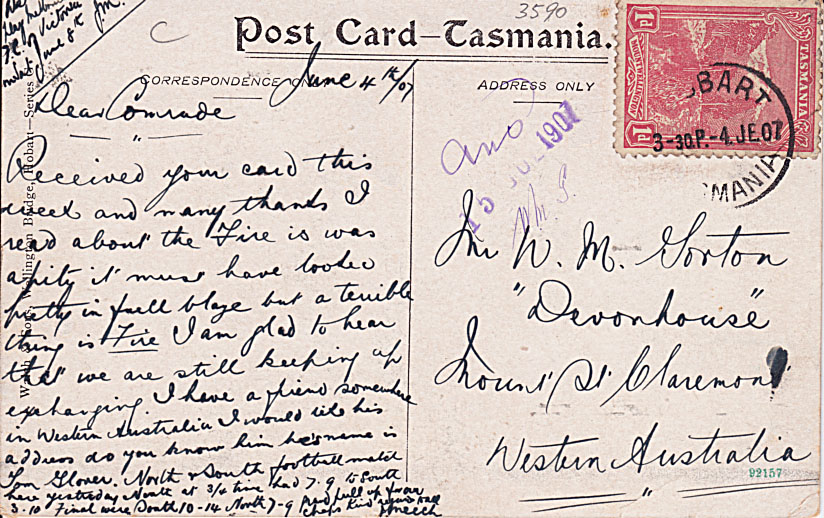 3590
C
Post Card–Tasmania.
CORRESPONDENCE ONLY
ADDRESS ONLY
June 4th/07
Dear Comrade
Received your card this
week and many thanks I
read about the Fire is was
a pity it must have looked
pretty in full blaze but a terrible
thing is Fire I am glad to hear
that we are still keeping up
exhanging. I have a friend somewhere
in Western Australia I would like his
address do you know him he'sname is
Tom Glover. North v South football match
here yesterday North at 3/4 time had 7-9 to South
3-10 Final were South 10-14 North 7-9
Bridge, Hobart—Series
Wellington
1d
TASMANIA
1d
HOBART
3-30.P.-4.JE.07
TASMANIA
Ans
15 JUL 1907
Wm G.
Mr W. M. Gorton
"Devonhouse"
Mount St Claremont
Western Australia
92157